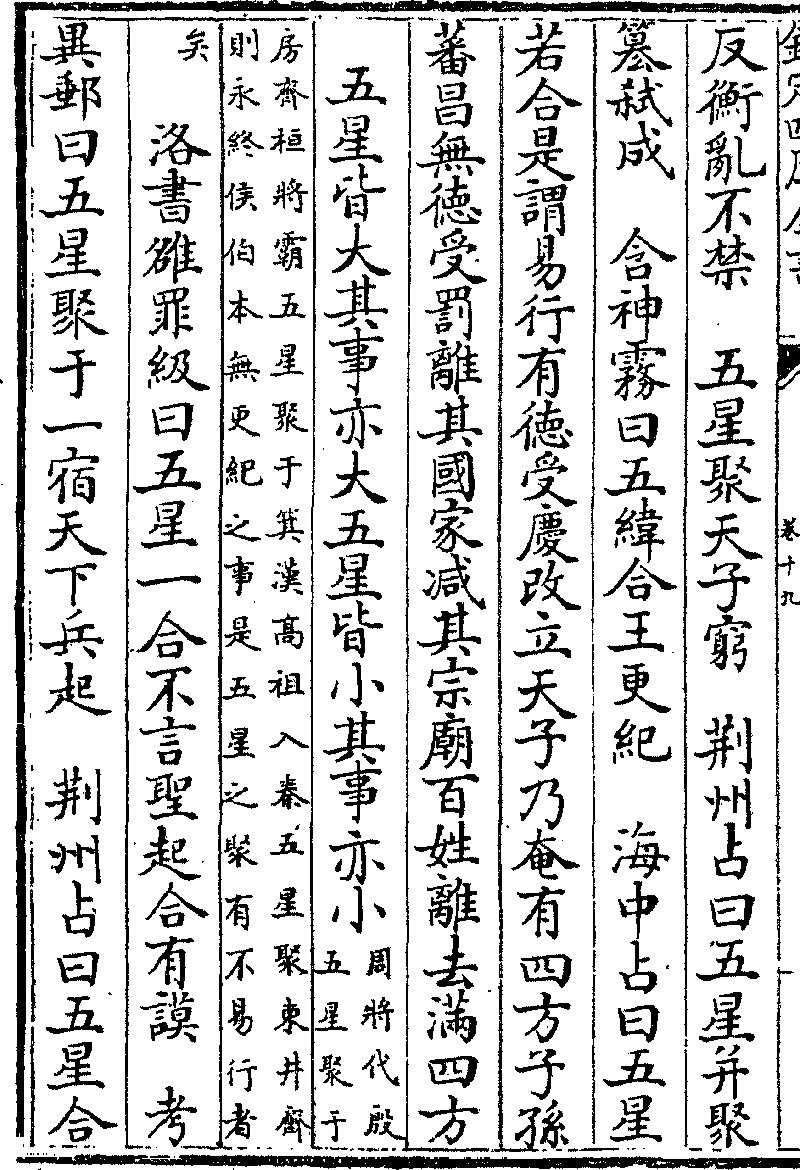 欽定四庫全書
卷十九
反衡亂不禁　五星聚天子窮　荆州占曰五星并聚
簒弑成　含神霧曰五緯合王更紀　海中占曰五星
若合是謂易行有德受慶改立天子乃奄有四方子孫
蕃昌無德受罰離其國家减其宗廟百姓離去滿四方
五星皆大其事亦大五星皆小其事亦小
周將代殷
五星聚于
房齊桓將霸五星聚于箕漢髙祖入秦五星聚東井齊
則永終侯伯本無更紀之事是五星之聚有不易行者
矣
洛書雒罪級曰五星一合不言聖起合有謨　考
異郵曰五星聚于一宿天下兵起　荆州占曰五星合